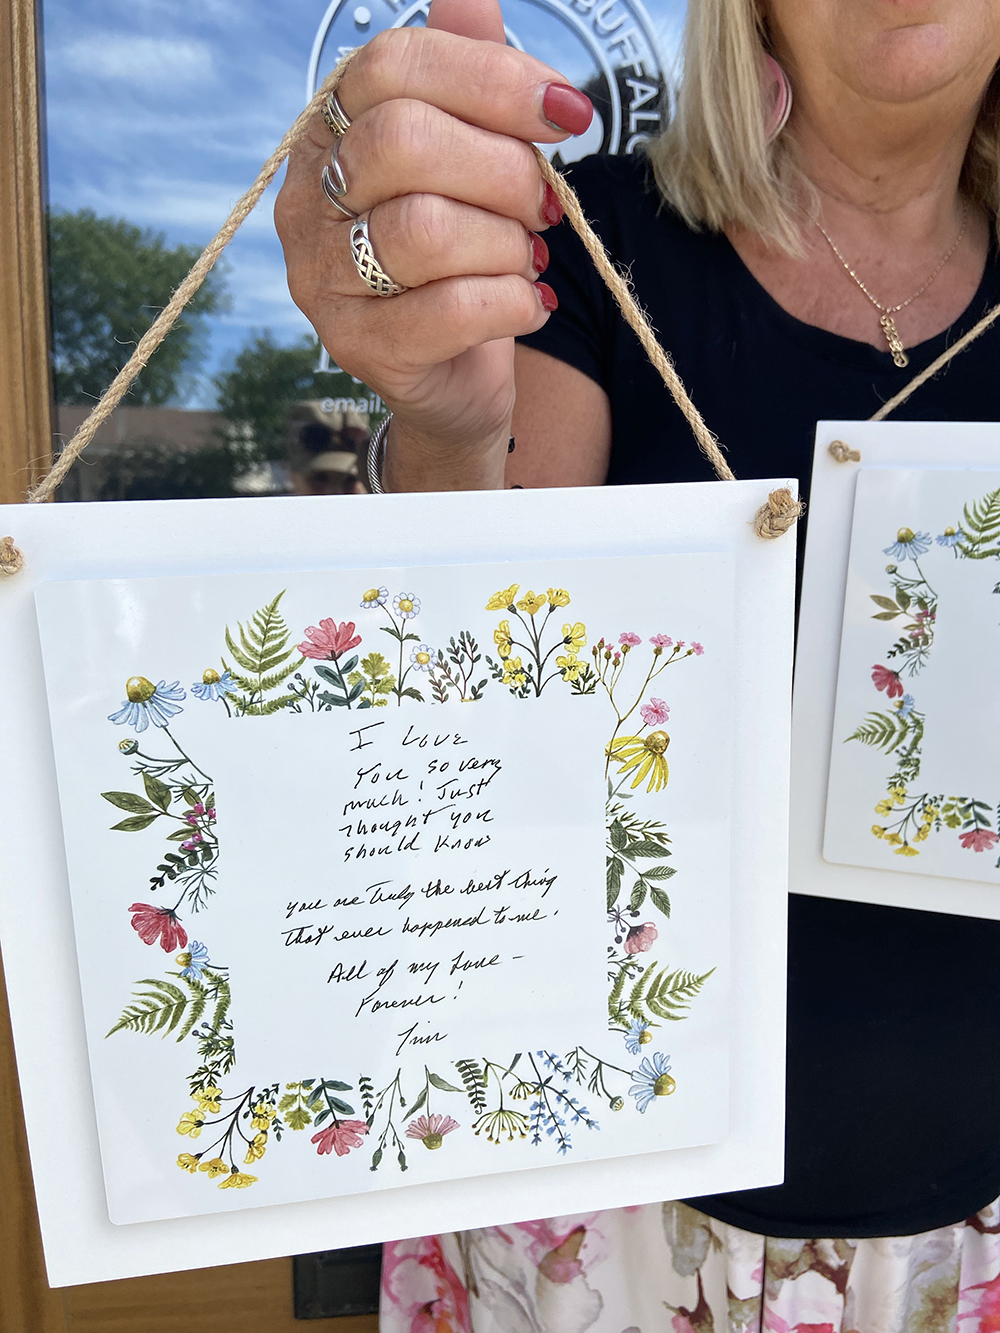 BUFFALO
email.
I Love
You so very
much! Just
thought you
should know
you are truly the best thing
that ever happened to me.
All of my love –
Forever!
Tim